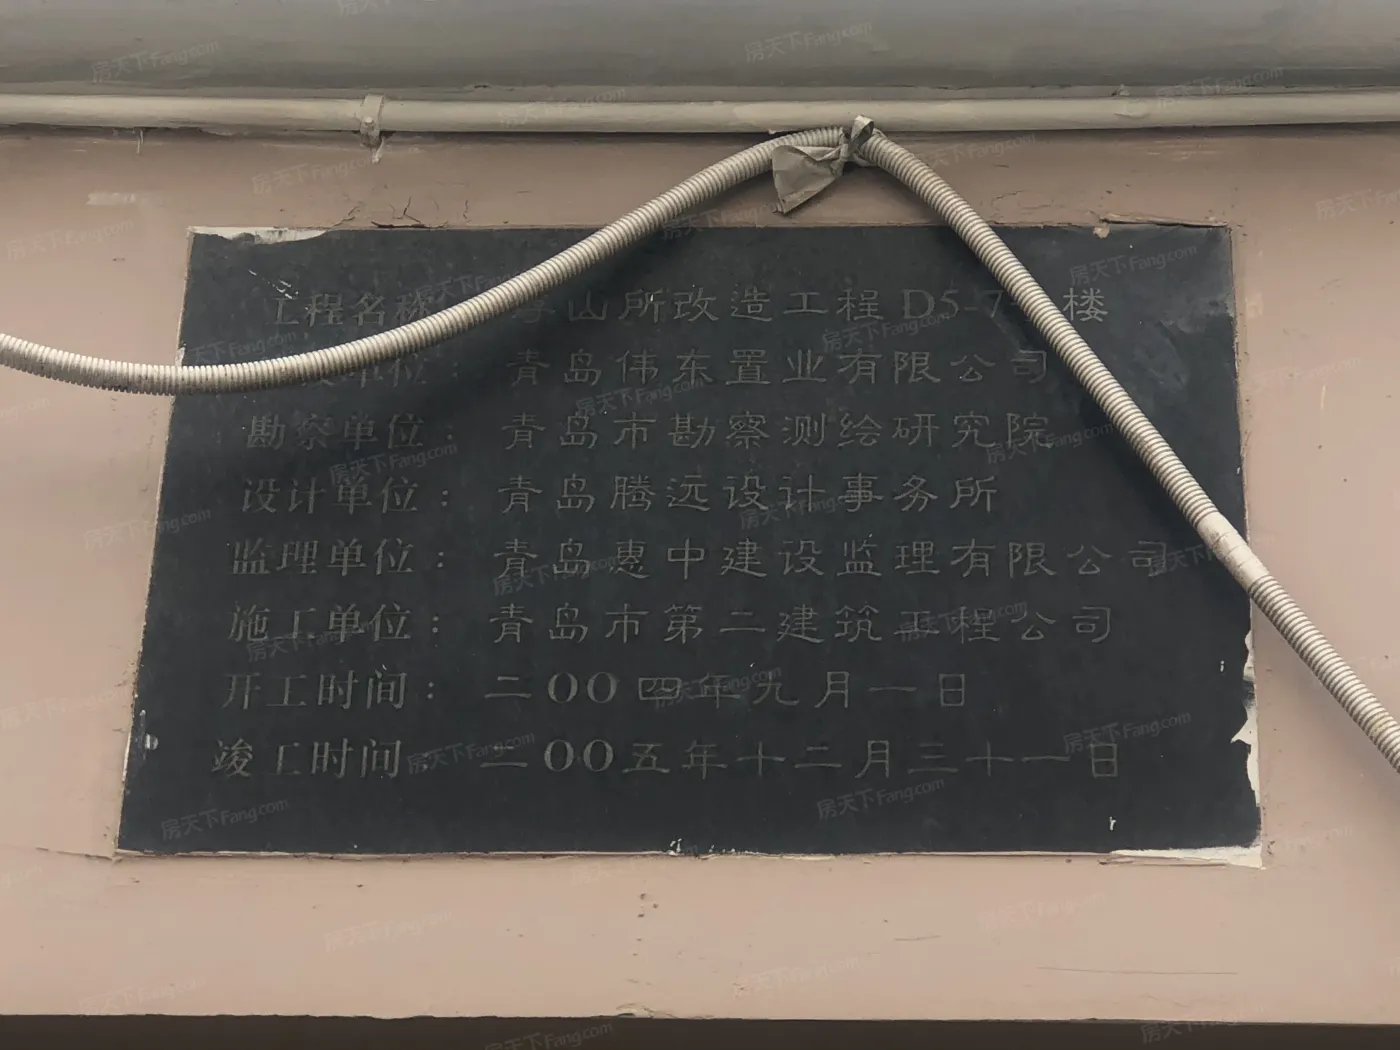 工程名称 山所改造工程D5-7 楼
单位：青岛伟东置业有限公司
勘察单位：青岛市勘察测绘研究院
设计单位：青岛腾远设计事务所
监理单位：青岛惠中建设监理有限公司
施工单位：青岛市第二建筑工程公司
开工时间：二OO四年九月一日
竣工时间：二OO五年十二月三十一日
房天下Fang.com